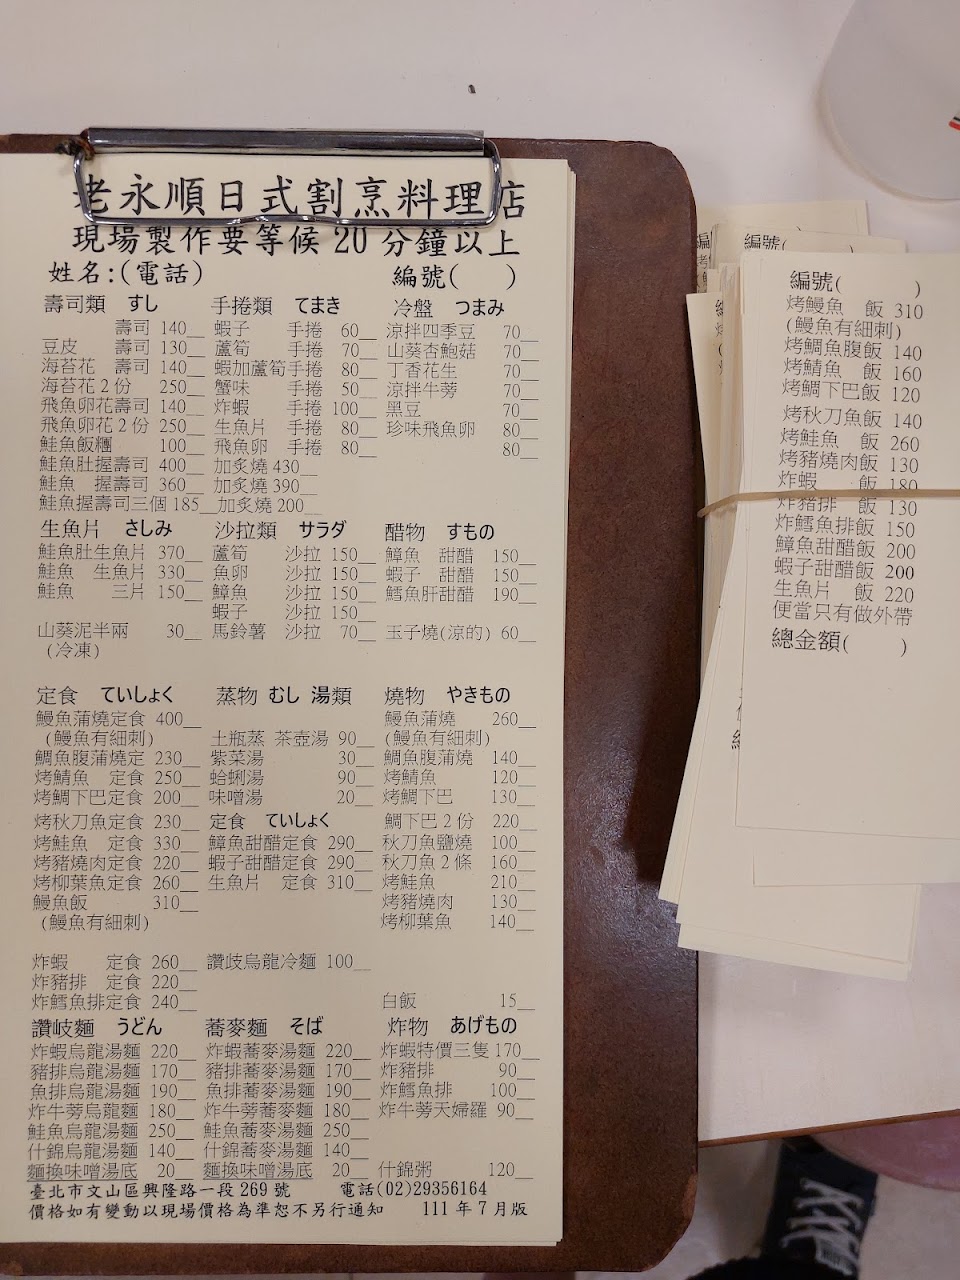 老永順日式割烹料理店
現場製作要等候 20 分鐘以上
姓名:(電話) 編號( )
壽司類 すし
壽司 140
豆皮 壽司 130
海苔花 壽司 140
海苔花 2 份 250
飛魚卵花壽司 140
飛魚卵花 2 份 250
鮭魚飯糰 100
鮭魚肚握壽司 400 加炙燒 430
鮭魚 握壽司 360 加炙燒 390
鮭魚握壽司三個 185 加炙燒 200
手捲類 てまき
蝦子 手捲 60
蘆筍 手捲 70
蝦加蘆筍手捲 80
蟹味 手捲 50
炸蝦 手捲 100
生魚片 手捲 80
飛魚卵 手捲 80
冷盤 つまみ
涼拌四季豆 70
山葵杏鮑菇 70
丁香花生 70
涼拌牛蒡 70
黑豆 70
珍味飛魚卵 80
80
生魚片 さしみ
鮭魚肚生魚片 370
鮭魚 生魚片 330
鮭魚 三片 150
山葵泥半兩 30
(冷凍)
沙拉類 サラダ
蘆筍 沙拉 150
魚卵 沙拉 150
鱆魚 沙拉 150
蝦子 沙拉 150
馬鈴薯 沙拉 70
醋物 すもの
鱆魚 甜醋 150
蝦子 甜醋 150
鱈魚肝甜醋 190
玉子燒(涼的) 60
定食 ていしょく
鰻魚蒲燒定食 400
(鰻魚有細刺)
鯛魚腹蒲燒定 230
烤鯖魚 定食 250
烤鯛下巴定食 200
烤秋刀魚定食 230
烤鮭魚 定食 330
烤豬燒肉定食 220
烤柳葉魚定食 260
鰻魚飯 310
(鰻魚有細刺)
炸蝦 定食 260
炸豬排 定食 220
炸鱈魚排定食 240
蒸物 むし 湯類
土瓶蒸 茶壺湯 90
紫菜湯 30
蛤蜊湯 90
味噌湯 20
定食 ていしょく
鱆魚甜醋定食 290
蝦子甜醋定食 290
生魚片 定食 310
讚岐烏龍冷麵 100
燒物 やきもの
鰻魚蒲燒 260
(鰻魚有細刺)
鯛魚腹蒲燒 140
烤鯖魚 120
烤鯛下巴 130
鯛下巴 2 份 220
秋刀魚鹽燒 100
秋刀魚 2 條 160
烤鮭魚 210
烤豬燒肉 130
烤柳葉魚 140
白飯 15
讚岐麵 うどん
炸蝦烏龍湯麵 220
豬排烏龍湯麵 170
魚排烏龍湯麵 190
炸牛蒡烏龍麵 180
鮭魚烏龍湯麵 250
什錦烏龍湯麵 140
麵換味噌湯底 20
蕎麥麵 そば
炸蝦蕎麥湯麵 220
豬排蕎麥湯麵 170
魚排蕎麥湯麵 190
炸牛蒡蕎麥麵 180
鮭魚蕎麥湯麵 250
什錦蕎麥湯麵 140
麵換味噌湯底 20
炸物 あげもの
炸蝦特價三隻 170
炸豬排 90
炸鱈魚排 100
炸牛蒡天婦羅 90
什錦粥 120
臺北市文山區興隆路一段 269 號 電話(02)29356164
價格如有變動以現場價格為準恕不另行通知 111 年 7 月版
編號(
編號( )
烤鰻魚 飯 310
(鰻魚有細刺)
烤鯛魚腹飯 140
烤鯖魚 飯 160
烤鯛下巴飯 120
烤秋刀魚飯 140
烤鮭魚 飯 260
烤豬燒肉飯 130
炸蝦 飯 180
炸豬排 飯 130
炸鱈魚排飯 150
鱆魚甜醋飯 200
蝦子甜醋飯 200
生魚片 飯 220
便當只有做外帶
總金額( )